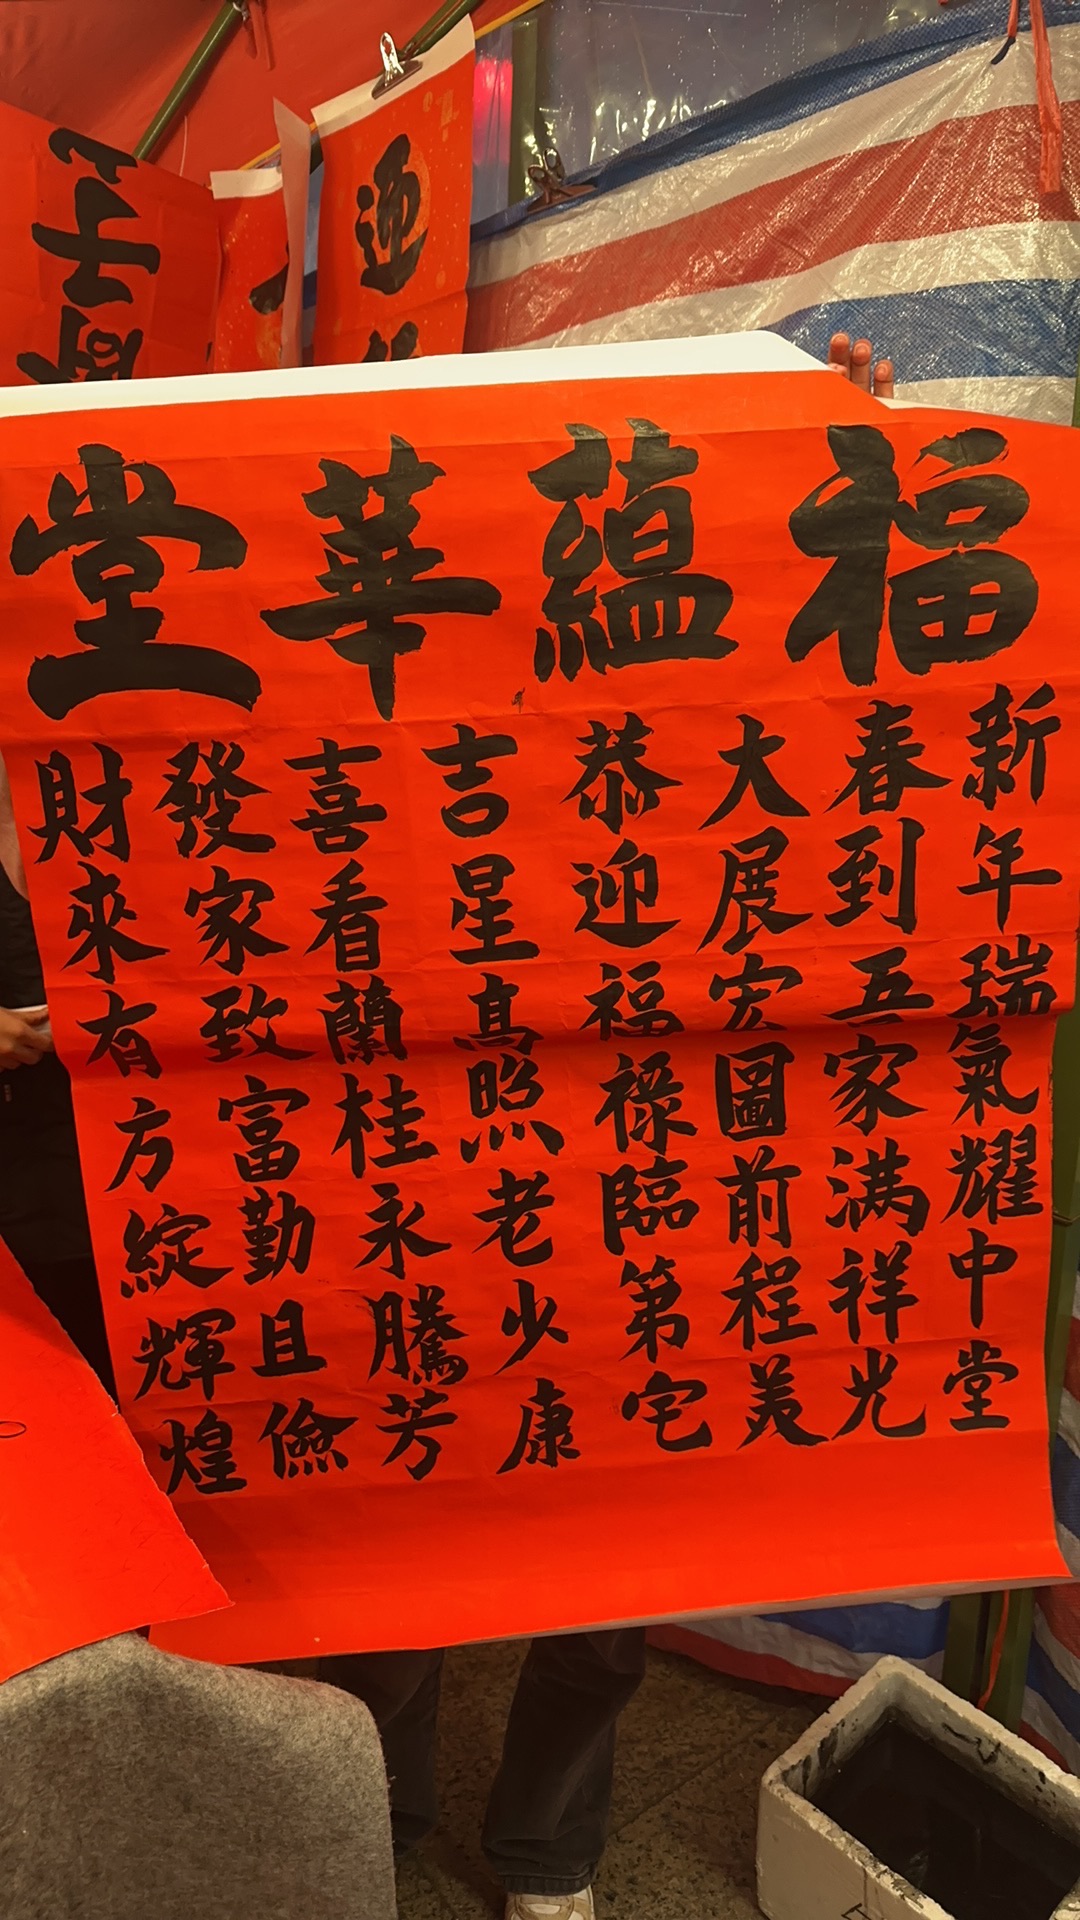 福蘊華堂
新年瑞氣耀中堂
春到吾家满祥光
大展宏圖前程美
恭迎福祿臨第宅
吉星髙照老少康
喜看蘭桂永騰芳
發家致富勤且儉
財來有方綻輝煌
迎